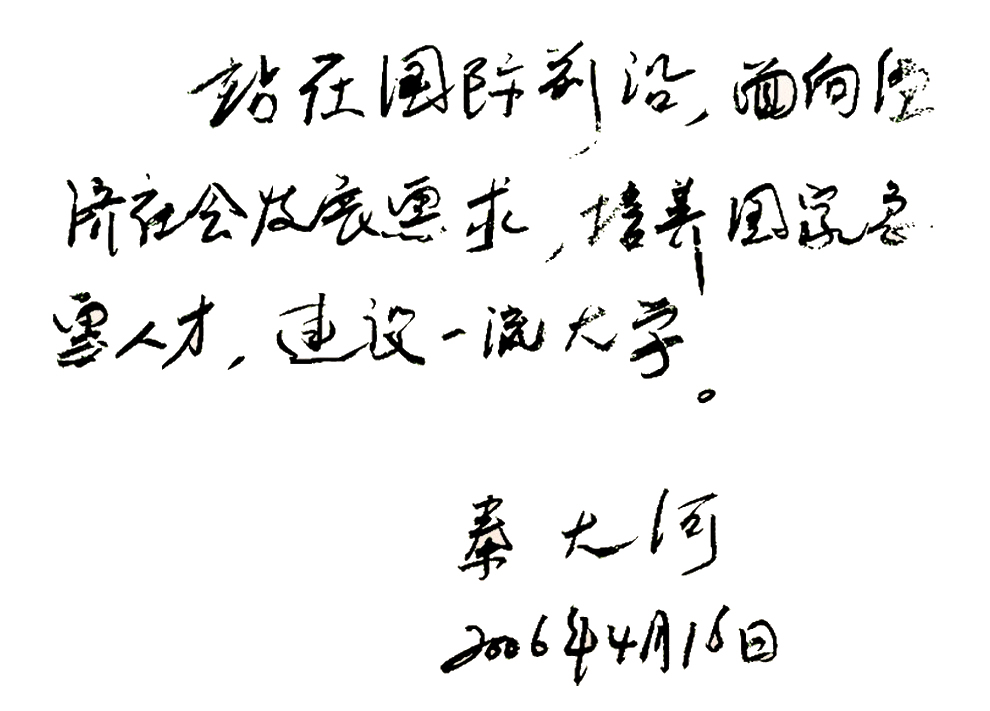 站在国际前沿，面向经
济社会发展需求，培养国家急
需人才，建设一流大学。
秦大河
2006年4月16日